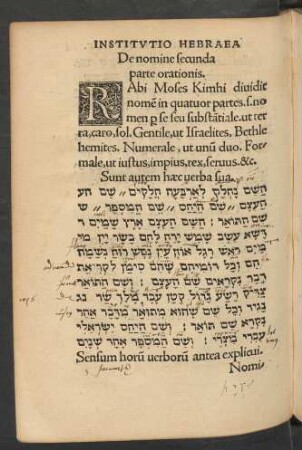 INSTITVTIO HEBRAEA
De nomine secunda
parte orationis.
RAbi Moses Kimhi diuidit
nomē in quatuor partes. s. no
men ꝑ se seu substātiale. ut ter
ra, caro, sol. Gentile, ut Israelites, Bethle
hemites. Numerale, ut unū duo. For
male, ut iustus, impius, rex, seruus. &c.
Sunt autem hæc uerba sua.
השם נחלק לארבעה חלקים שם הע
העצם שם היחס שם המספר ש
שם התואר: השם העצם ארץ שמים ד
דשא עשב שמש ירח בשר יין מי
מים ראש רגל אזן עין נפש רוח נשמה
וכל דומיהם שהם סימן לקריאת
דבר נקראים שם העצם: והשם
צדיק רשע גדול קטן עבד מלך שר
וכל שם שהוא מתואר מדבר אחר
נקרא שם תואר: ושם היחס ישראלי
עברי מצרי: ושם המספר אחד שנים
Sensum horū uerborū antea explicui.
Nomi